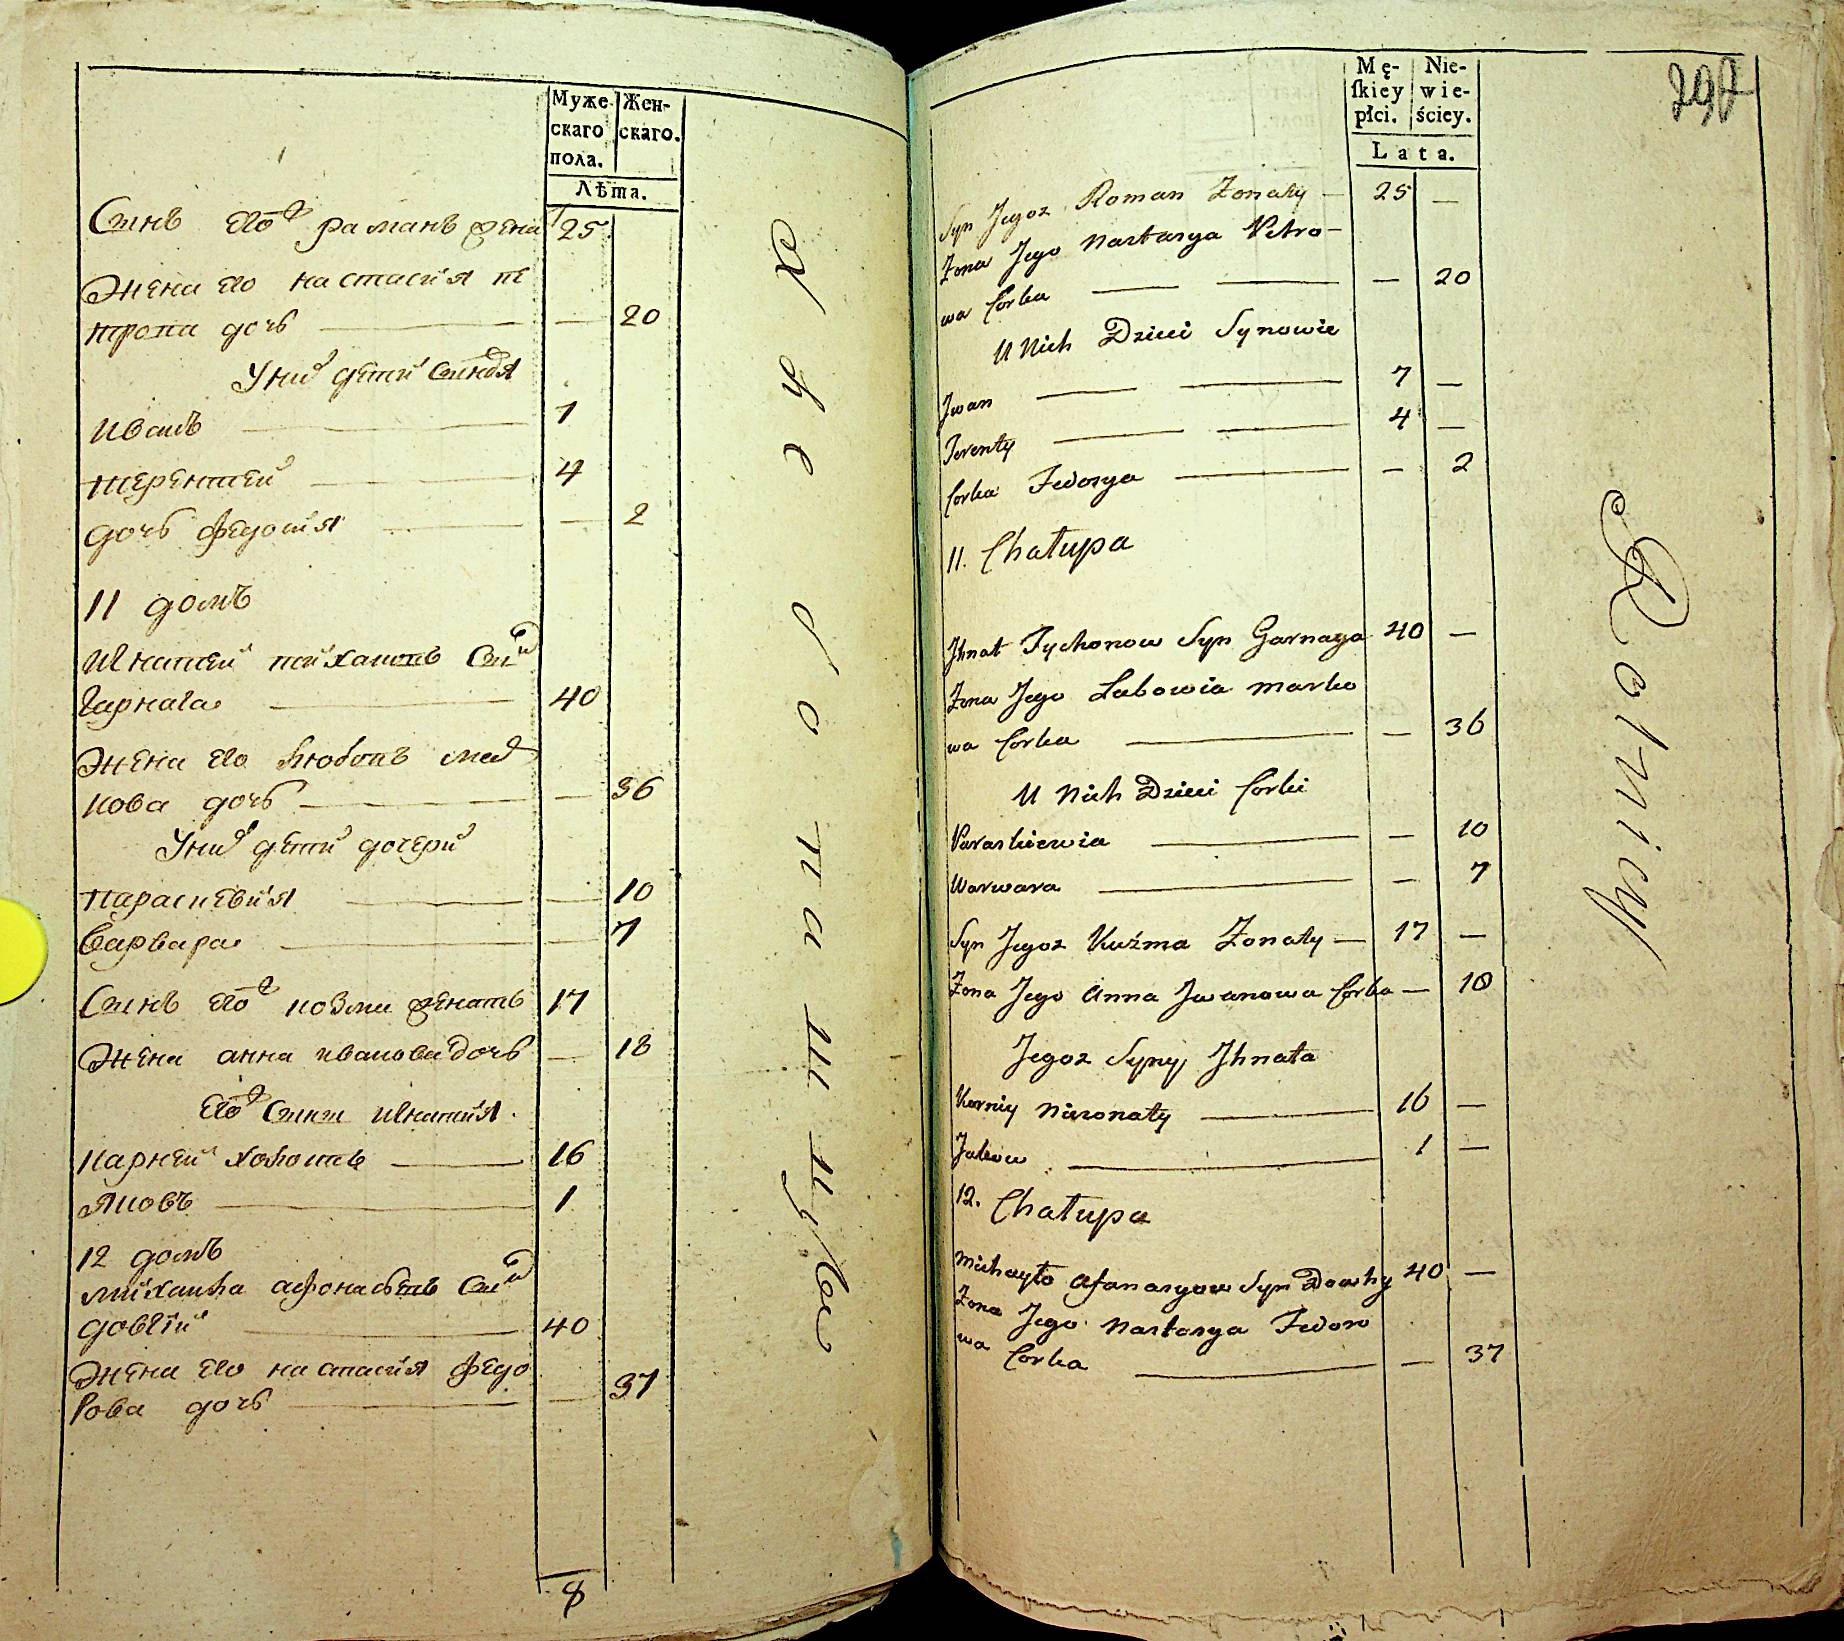 Муже-
скаго
пола.
Жен-
скаго.
Лѣта.
Синъ его раманъ жена 25
Жена его настасия пе
трова дочь — 20
У них дети синовя
Иванъ 7
терентей 4
дочь федосия — 2
11 домъ
Игнатей тихановъ син
Гарнага 40
Жена его Любовъ мар
кова дочь — 36
У них дети дочери
параскевия — 10
Варвара — 7
Синъ его козма женатъ 17
Жена анна иванова дочь — 18
его сини игнатия
карней холостъ 16
яковъ 1
12 домъ
михаила афонасевъ син
довгий 40
Жена его настасия федо
рова дочь — 37
8
Mę-
skiey
płci.
Nie-
wie-
ściey.
Lata.
297
Syn Jegoz Roman Żonaty — 25 —
Żona Jego Nastasya Petro-
wa Corka — 20
U Nich Dzieci Synowie
Jwan 7 —
Terenty 4 —
Corka Fedosya — 2
11. Chałupa
Jhnat Tychonow Syn Garnaga 40 —
Żona Jego Lubowia Marko
wa Corka — 36
U Nich Dzieci Corki
Paraskiewia — 10
Warwara — 7
Syn Jegoz Kuźma Żonaty — 17 —
Żona Jego Anna Jwanowa Corka — 18
Jegoz Syny Jhnata
Korniy Nieżonaty 16 —
Jakow 1 —
12. Chałupa
Michayło Afanasyow Syn Dowhy 40 —
Żona Jego Nastasya Fedoro
wa Corka — 37
Rolnicy